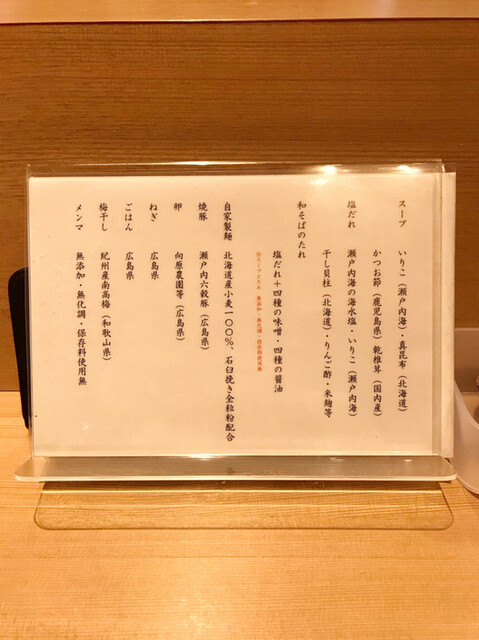 スープ　いりこ（瀬戸内海）・真昆布（北海道）
かつお節（鹿児島県）乾椎茸（国内産）
塩だれ　瀬戸内海の海水塩・いりこ（瀬戸内海）
干し貝柱（北海道）・りんご酢・米麹等
和そばのたれ
塩だれ＋四種の味噌・四種の醤油
無添加・無化調・保存料使用無
自家製麺　北海道産小麦一〇〇％、石臼挽き全粒粉配合
焼豚　瀬戸内六穀豚（広島県）
卵　向原農園等（広島県）
ねぎ　広島県
ごはん　広島県
梅干し　紀州産南高梅（和歌山県）
メンマ　無添加・無化調・保存料使用無